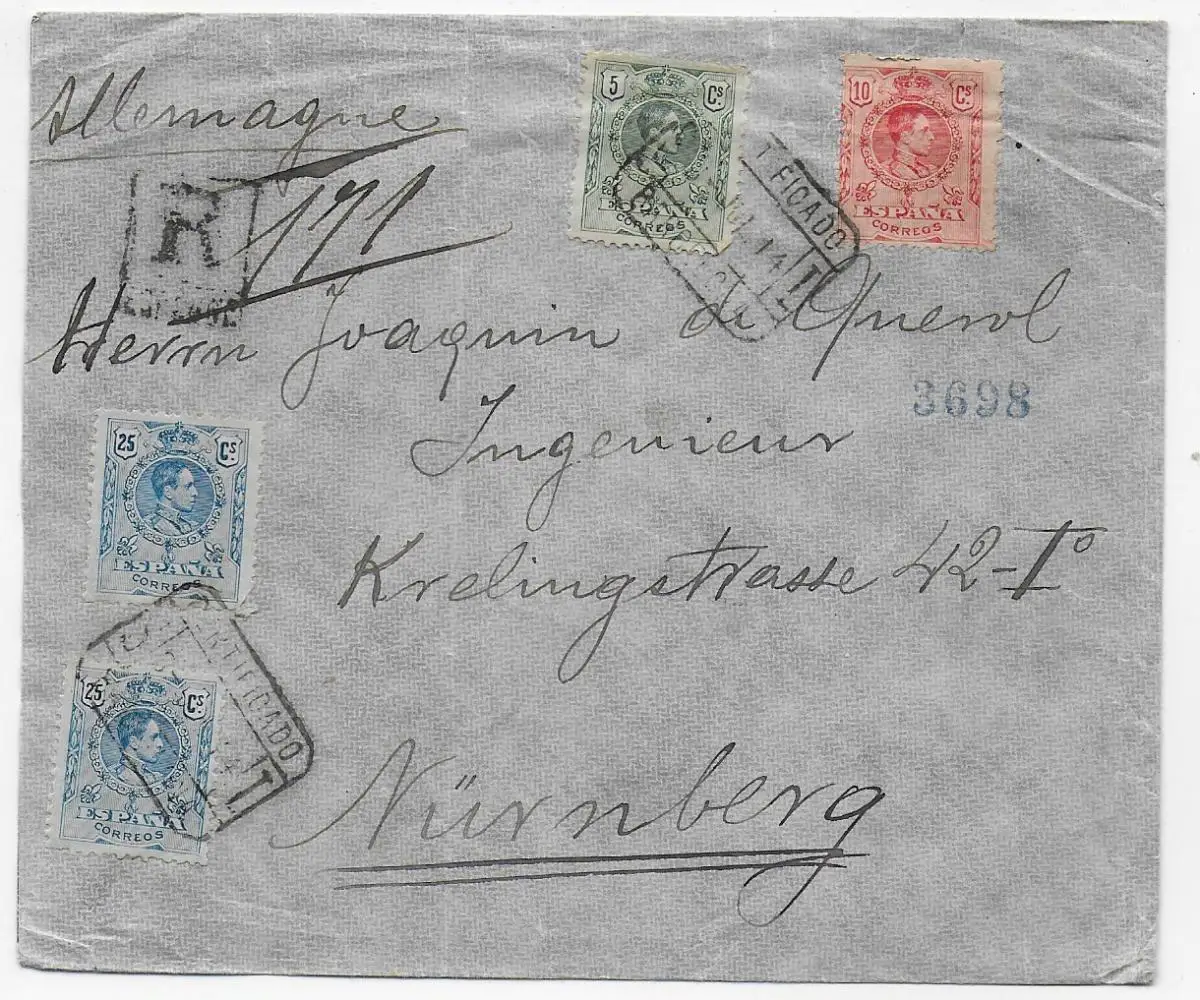 Allemagne
5 Cs.
10 Cs.
ESPAÑA
CORREOS
ESPAÑA
CORREOS
R
171
14
T
Herrn Joaquin de Querol
3698
Ingenieur
25 Cs.
ESPAÑA
CORREOS
Krelingstrasse 42-Iº
25 Cs.
ESPAÑA
CORREOS
T
Nürnberg